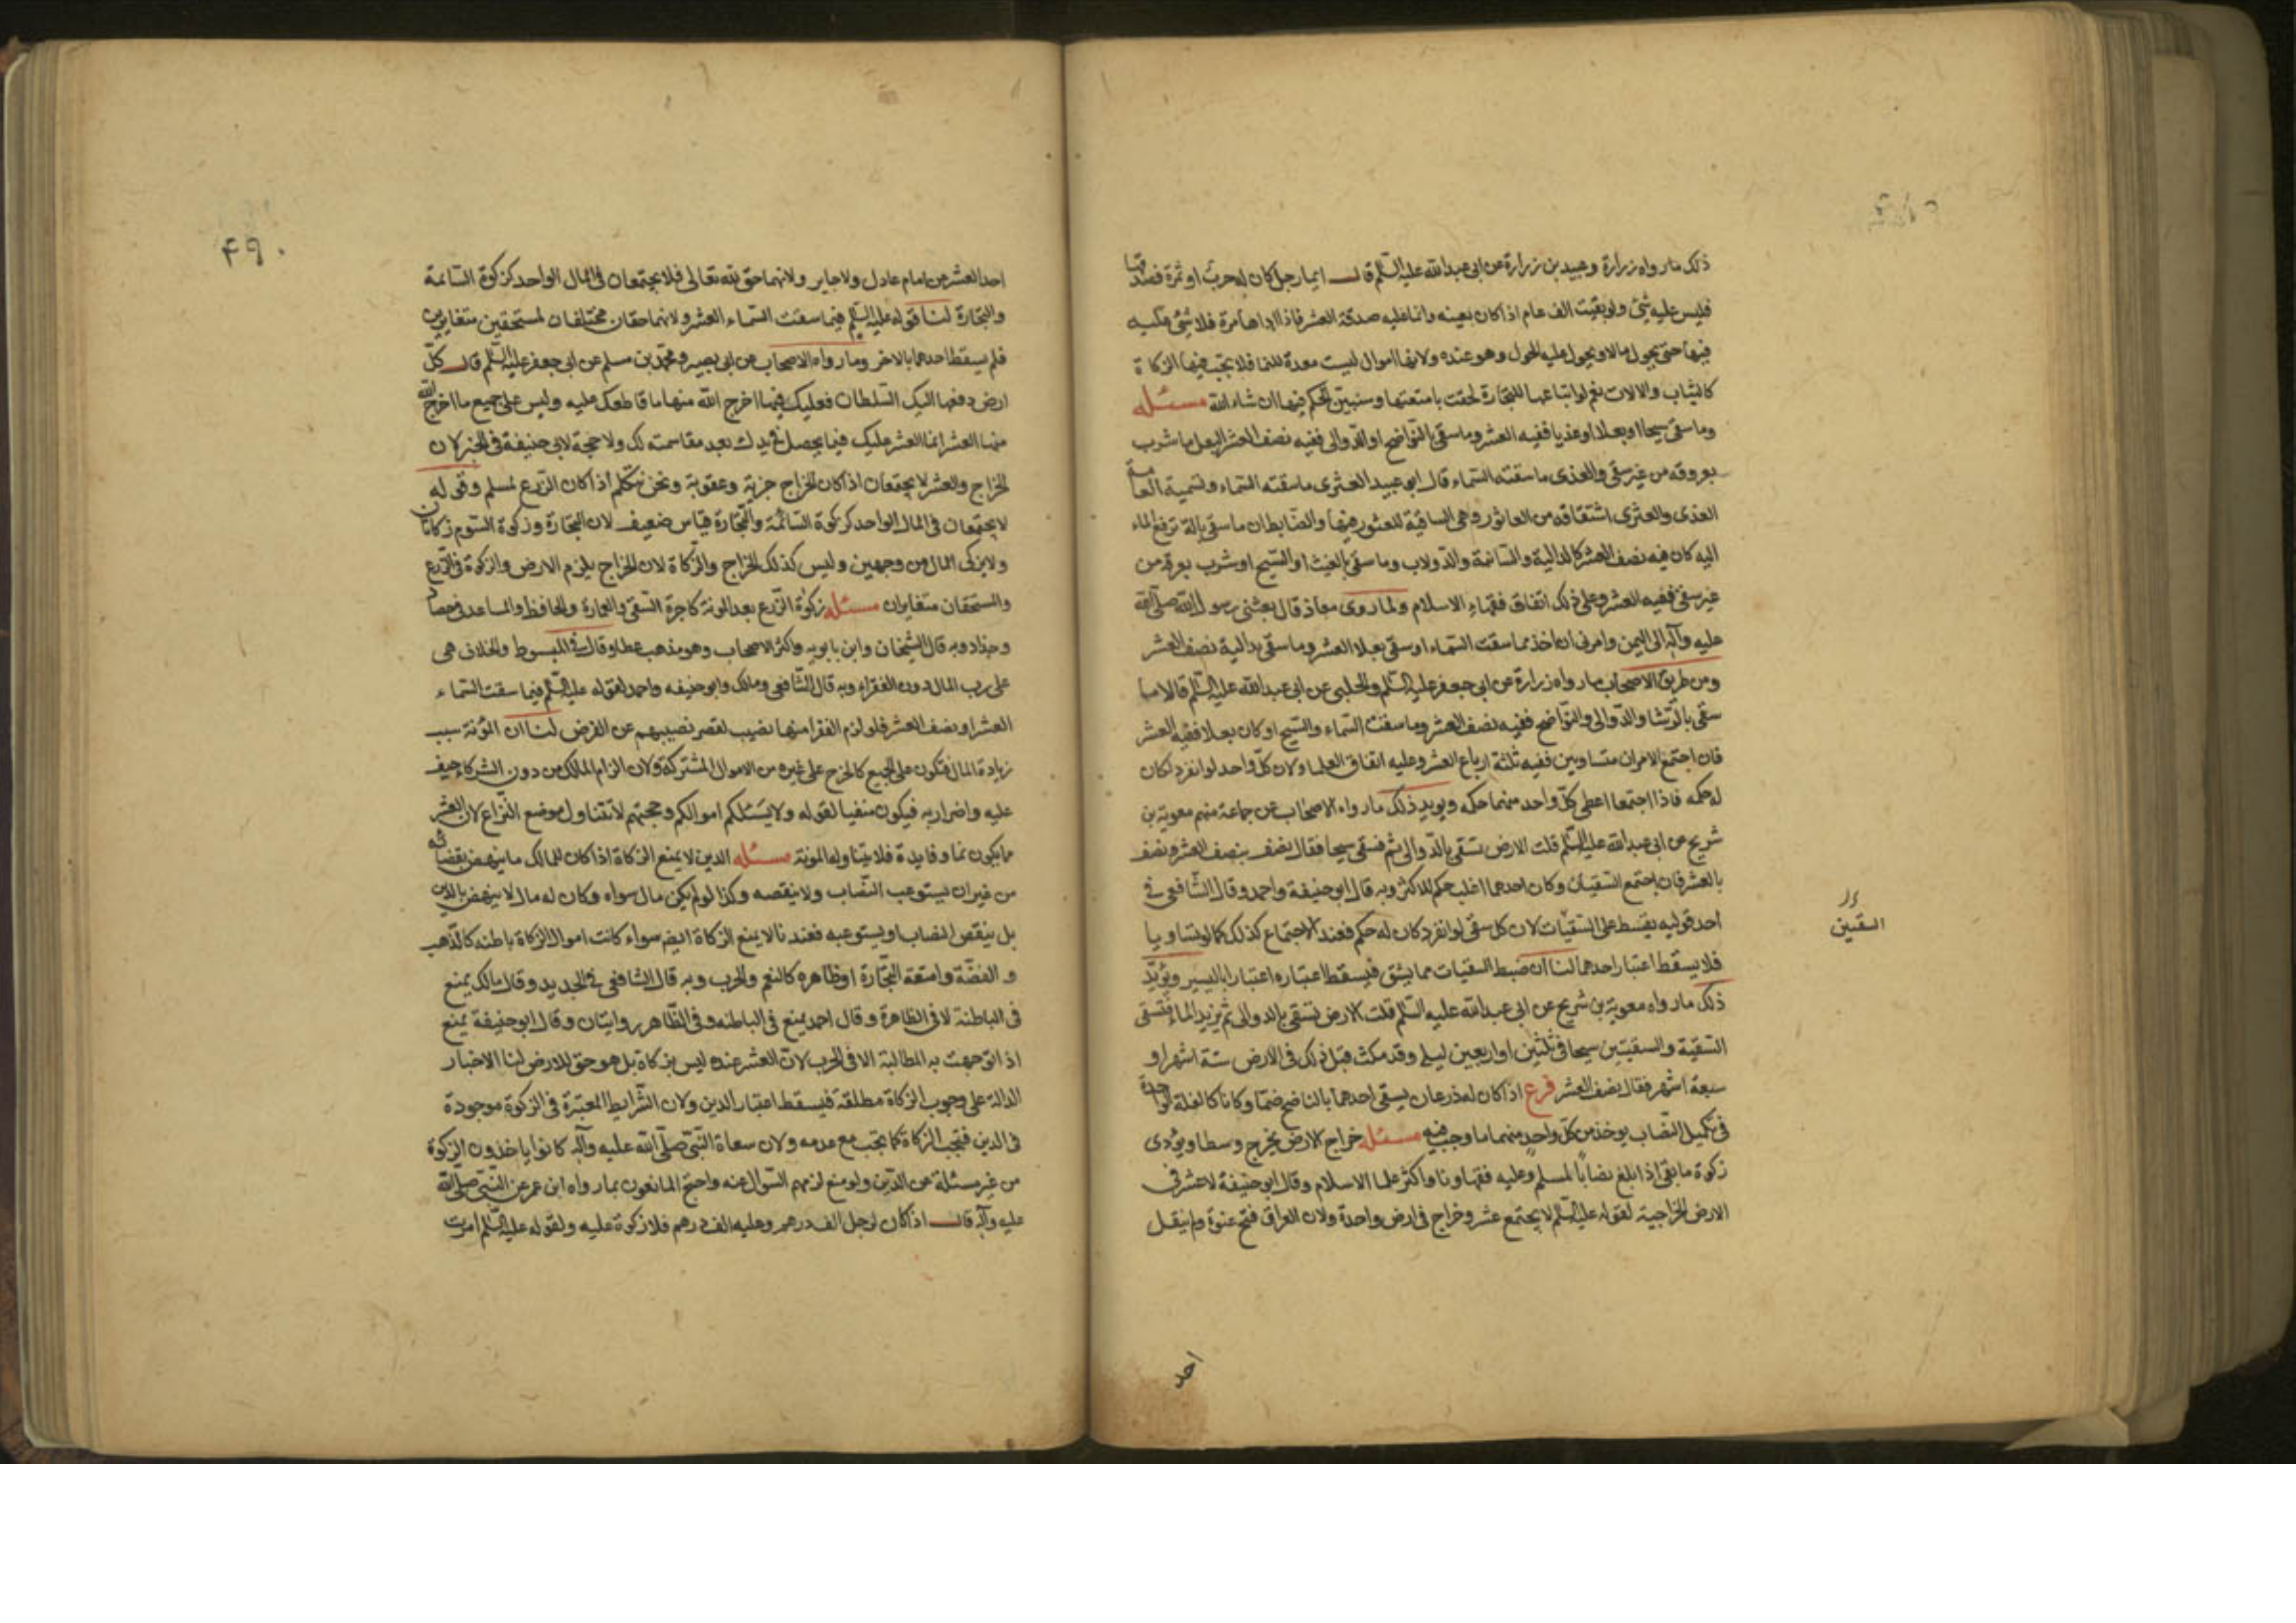 ذلك مارواه زرارة وعبيد بن زرارة عن ابى عبدالله عليه السّلم قال ايما رجل كان له حرث او ثمرة فصدقها
فليس عليه شئ ولو بقيت الف عام اذا كان بعينه وانما عليه صدقة العشر فاذا اداها مرة فلا شئ عليه
فيها حتى يحول مالا ويحول عليه الحول وهو عنده ولانها اموال ليست معدة للنما فلا تجب فيها الزكاة
كالثياب والالات نعم لو ابتاعها للتجارة لحقت بامتعتها وسنبين الحكم فيها ان شاء الله مسئله
وما سقى سيحا او بعلا او عذيا ففيه العشر وما سقى بالنّواضح او الدّوالى ففيه نصف العشر البعل ما شرب
بعروقه من غير سقى والعذى ما سقته السّماء قال ابو عبيد العثرى ما سقته السّماء وتسمية العامة
العذى والعثرى اشتقاقه من العاثور وهى الساقية للعثور فيها والضابطان ما سقى بالة ترفع الماء
اليه كان فيه نصف العشر كالدالية والسانية والدولاب وما سقى بالغيث او السّيح او شرب بعرقه من
غير سقى ففيه العشر وعلى ذلك اتفاق فقهاء الاسلام ولما روى معاذ قال بعثنى رسول الله صلّى الله
عليه وآله الى اليمن وامرنى ان اخذ مما سقت السّماء او سقى بعلا العشر وما سقى بدالية نصف العشر
ومن طريق الاصحاب مارواه زرارة عن ابى جعفر عليه السّلم والحلبى عن ابى عبدالله عليه السّلم قالا ما
سقى بالرّشا والدّوالى والنّواضح ففيه نصف العشر وما سقت السّماء والسّيح او كان بعلا ففيه العشر
فان اجتمع الامران متساويين ففيه ثلثة ارباع العشر وعليه اتفاق العلما ولان كلّ واحد لو انفرد لكان
له حكمه فاذا اجتمعا اعطى كلّ واحد منهما حكمه ويويد ذلك مارواه الاصحاب عن جماعة منهم معوية بن
شريح عن ابى عبدالله عليه السّلم قلت الارض تسقى بالدّوالى ثم فتسقى سيحا فقال نصف بنصف العشر ونصف
بالعشر فان اجتمع السقيان وكان احدهما اغلب حكم للاكثر وبه قال ابو حنيفة واحمد وقال الشّافعى فى
احد قوليه يقسط على السّقيات لان كل سقى لو انفرد كان له حكم فعند الاجتماع كذلك كما لو تساويا
السقين
فلا يسقط اعتبار احدهما لنا ان ضبط السقيات مما يشق فيسقط اعتباره اعتبارا باليسير ويؤيّد
ذلك مارواه معوية بن شريح عن ابى عبدالله عليه السّلم قلت الارض تسقى بالدوالى ثم يزيد الماء فتسقى
السّقية والسقيتين سيحا فى ثلثين او اربعين ليلة وقد مكث قبل ذلك فى الارض ستة اشهر او
سبعة اشهر فقال نصف العشر فرع اذا كان له زرعان يسقى احدهما بالناضح ضمّا وكانا كالغلة الواحدة
فى تكميل النّصاب يوخذ من كلّ واحد منهما ما وجب فيه مسئله خراج الارض يخرج وسطا ويؤدى
زكوة ما بقى اذا بلغ نصابا لمسلم وعليه فقهاونا واكثر علما الاسلام وقال ابو حنيفة لا عشر فى
الارض الخراجية لقوله عليه السّلم لا يجتمع عشر وخراج فى ارض واحدة ولان العراق فتح عنوة ولم ينقل
احد
۴۹۰
احد العشر عن امام عادل ولا جاير ولانهما حق لله تعالى فلا يجتمعان فى المال الواحد كزكوة السّائمة
والتجارة لنا قوله عليه السّلم فيما سقت السّماء العشر ولانهما حقان مختلفان لمستحقين متغايرين
فلم يسقط احدهما بالاخر ومارواه الاصحاب عن ابى بصير ومحمّد بن مسلم عن ابى جعفر عليه السّلم قال كلّ
ارض دفعها اليك السّلطان فعليك فيما اخرج الله منها ما قاطعك عليه وليس على جميع ما اخرج الله
منها العشر انما العشر عليك فيما يحصل فى يدك بعد مقاسمته لك ولا حجة لابى حنيفة فى الخبر لان
الخراج والعشر لا يجتمعان اذا كان الخراج جزية وعقوبة ونحن نتكلم اذا كان الزّرع لمسلم وقوله
لا يجتمعان فى المال الواحد كزكوة السّائمة والتّجارة قياس ضعيف لان التجارة وزكوة السّوم زكاتان
ولا يزكى المال من وجهين وليس كذلك الخراج والزّكاة لان الخراج يلزم الارض والزكوة فى الزّرع
والمستحقان متغايران مسئله زكوة الزّرع بعد المونة كاجرة السّقى والعمارة والحافظ والمساعد فى حصاد
وجذاد وبه قال الشّيخان وابن بابويه واكثر الاصحاب وهو مذهب عطا وقال فى المبسوط والخلاف هى
على رب المال دون الفقراء وبه قال الشّافعى ومالك وابو حنيفه واحمد لقوله عليه السّلم فيما سقت السّماء
العشر او نصف العشر فلو لزم الفقرا منها نصيب لقصر نصيبهم عن الفرض لنا ان المؤنة سبب
زيادة المال فتكون على الجميع كالخرج على غيره من الاموال المشتركة ولان الزام المالك من دون الشركاء حيف
عليه واضرار به فيكون منفيا لقوله ولا يسئلكم اموالكم وحجتهم لا تتناول موضع النّزاع لان العشر
مما يكون نما وفايدة فلا يتناوله المونة مسئله الدين لا يمنع الزكاة اذا كان للمالك ما ينهض بقضائه
من غير ان يستوعب النّصاب ولا ينقصه وكذا لو لم يكن مال سواه وكان له مال لا ينهض بالدين
بل ينقص النصاب او يستوعبه فعندنا لا يمنع الزكاة ايضا سواء كانت اموال الزكاة باطنه كالذّهب
والفضّة وامتعة التّجارة او ظاهره كالنعم والحرث وبه قال الشافعى فى الجديد وقال مالك يمنع
فى الباطنة لا فى الظاهرة وقال احمد يمنع فى الباطنه وفى الظّاهر روايتان وقال ابو حنيفة يمنع
اذا توجهت به المطالبة الا فى الحرث لانّ العشر عنده ليس بزكاة بل هو حق للارض لنا الاخبار
الدالة على وجوب الزكاة مطلقة فيسقط اعتبار الدين ولان الشّرايط المعتبرة فى الزكوة موجودة
فى الدين فتجب الزكاة كما تجب مع عدمه ولان سعاة النّبىّ صلّى الله عليه وآله كانوا ياخذون الزكوة
من غير مسئلة عن الدّين ولو منع لزمهم السّوال عنه واحتج المانعون بمارواه ابن عمر عن النّبىّ صلّى الله
عليه وآله قال اذا كان لرجل الف درهم وعليه الف درهم فلا زكوة عليه ولقوله عليه السّلم امرت